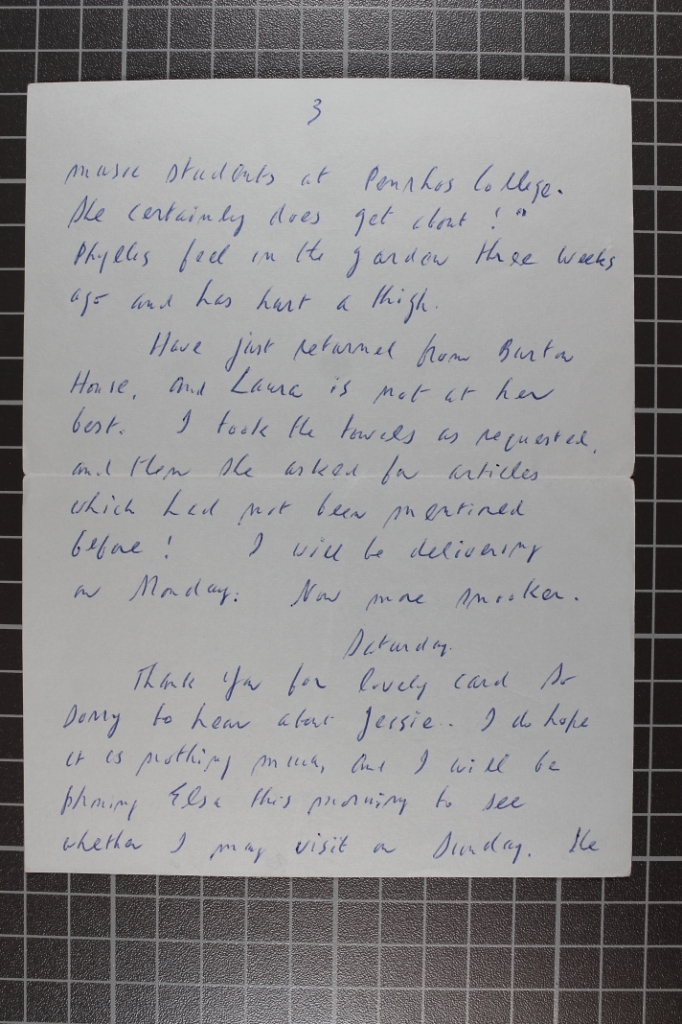 3
music students at Penrhos College.
She certainly does get about!"
Phyllis fell in the garden three weeks
ago and has hurt a thigh.
Have just returned from Barton
House, and Laura is not at her
best. I took the towels as requested,
and then she asked for articles
which had not been mentioned
before! I will be delivering
on Monday. Now more snooker.
Saturday.
Thank you for lovely card So
sorry to hear about Jessie.. I do hope
it is nothing much, and I will be
phoning Elsa this morning to see
whether I may visit on Sunday. She